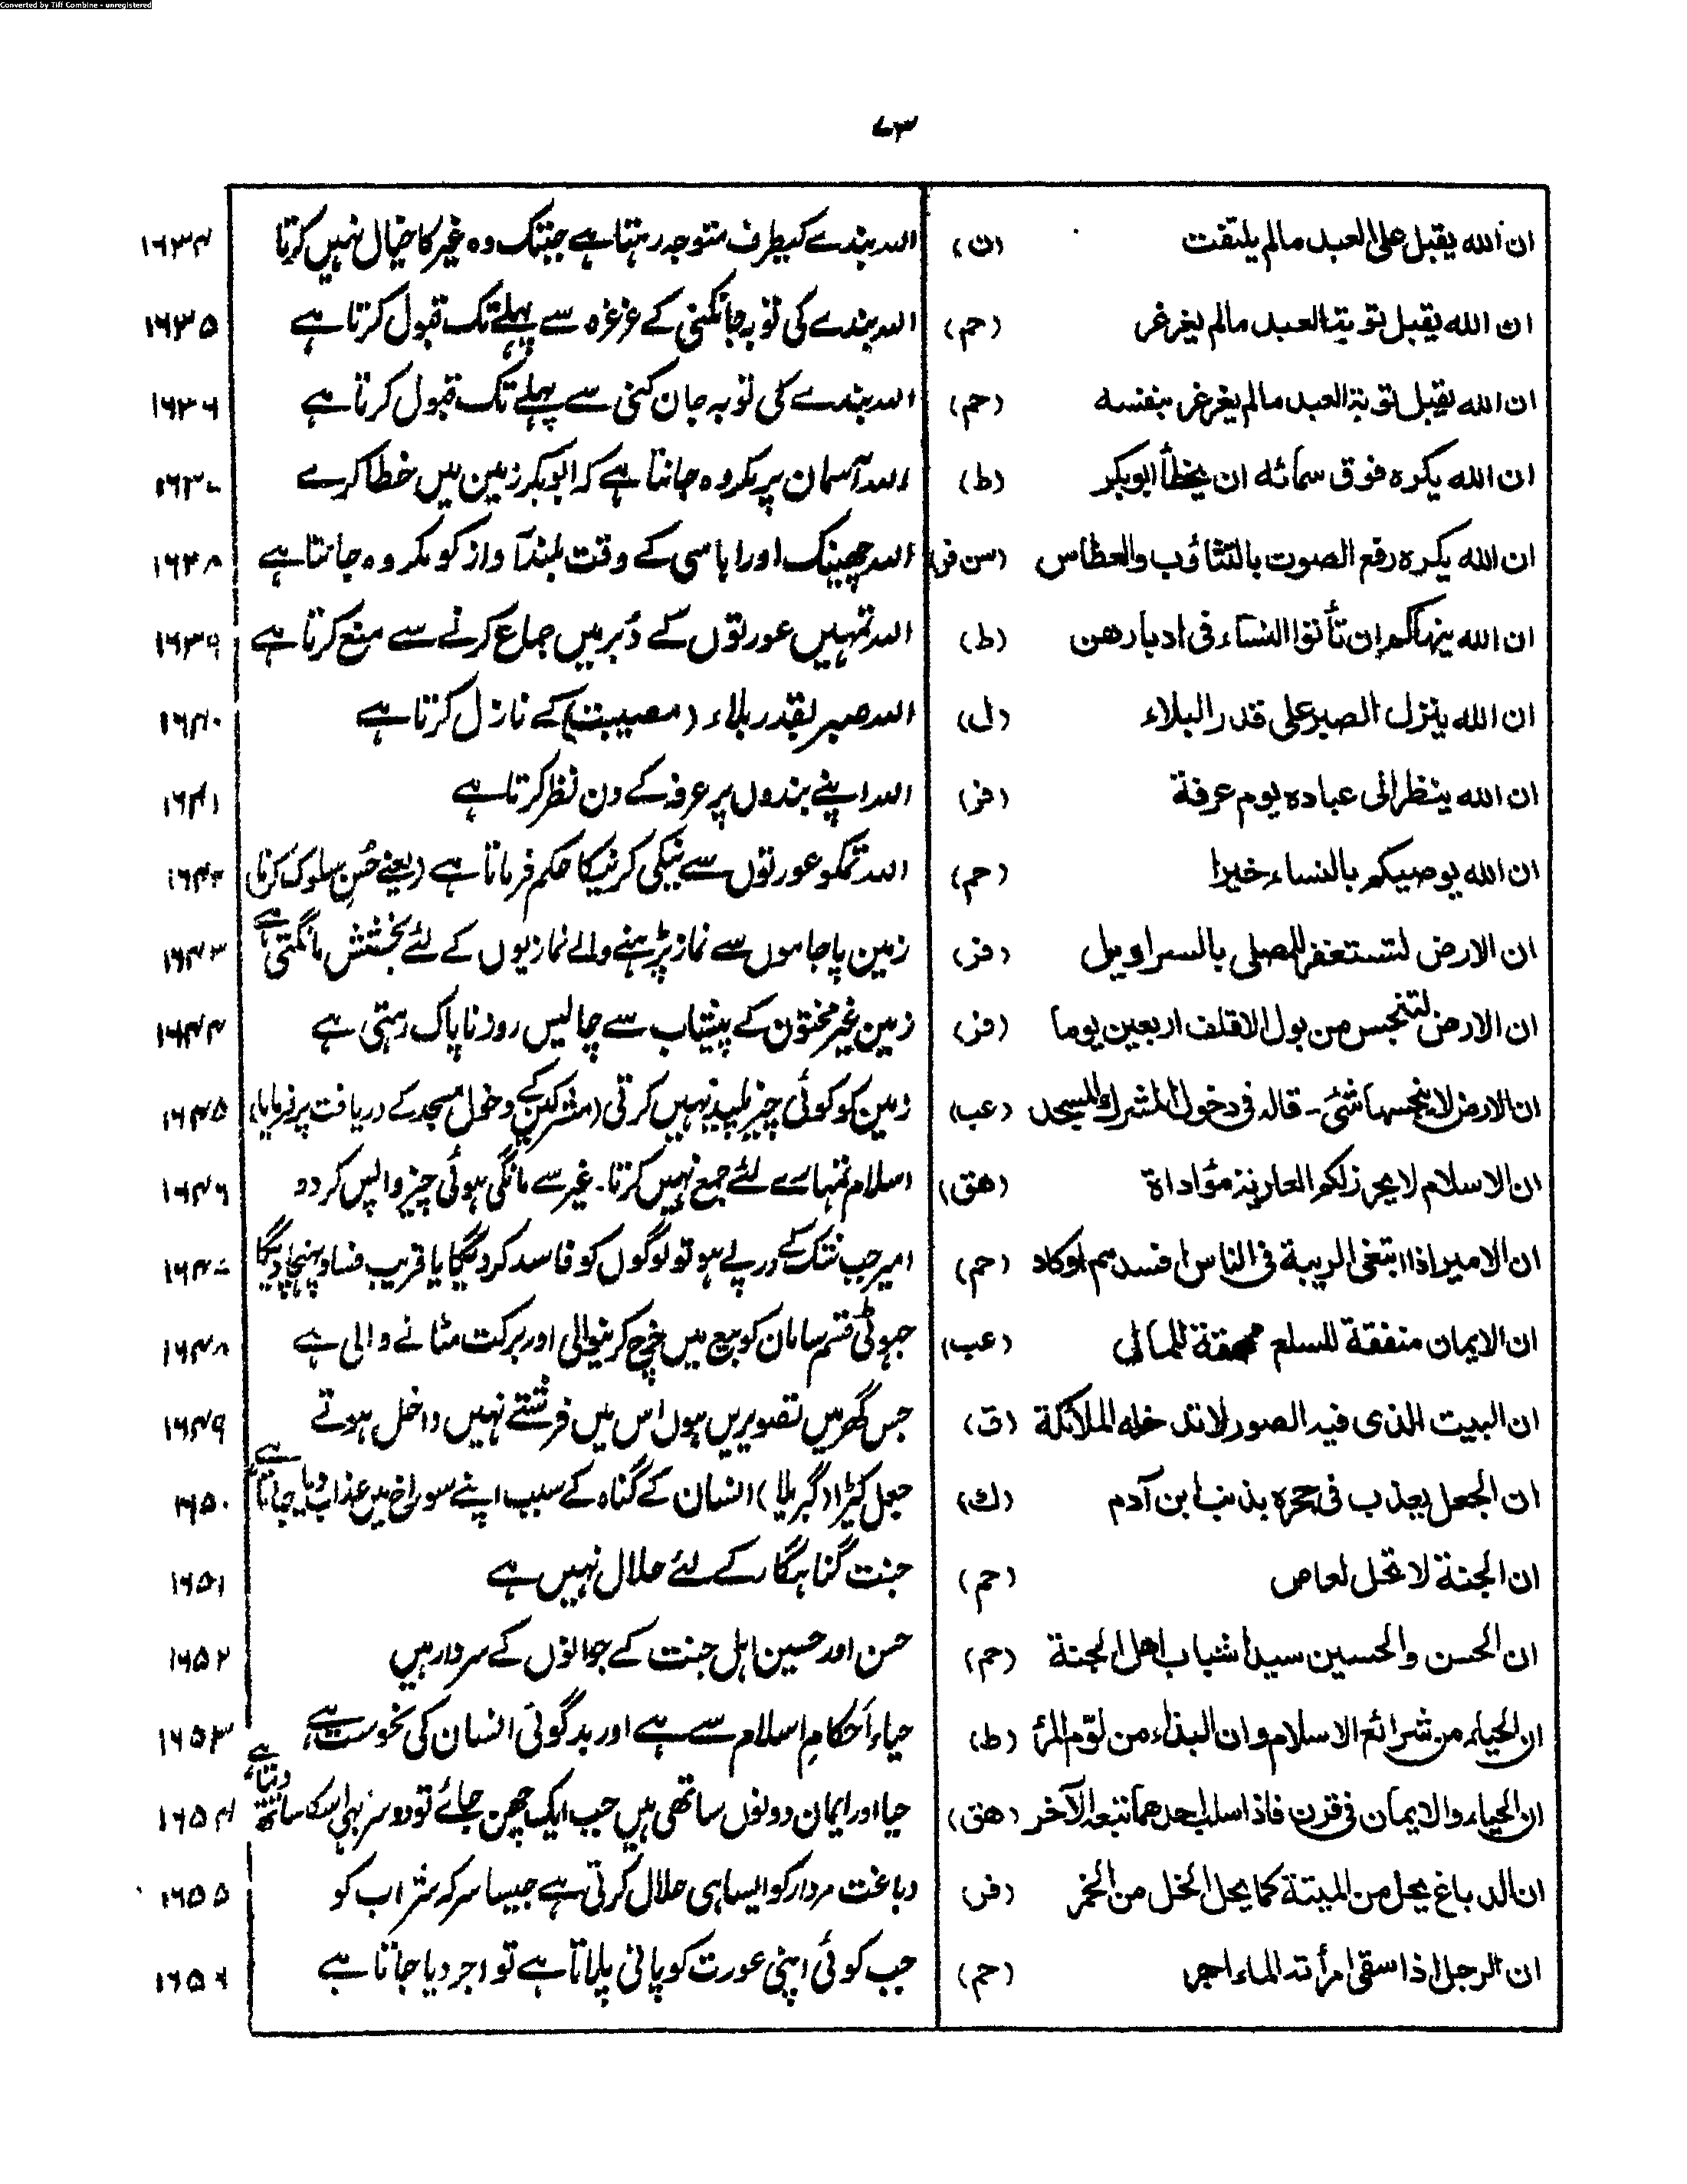 Converted by Tiff Combine - unregistered
۷۳
ان الله يقبل على العبد مالم يلتفت (ن) اللہ بندے کیطرف متوجہ رہتا ہے جبتک وہ غیر کا خیال نہیں کرتا ۱۶۳۴
ان الله يقبل توبة العبد مالم يغرغر (حم) اللہ بندے کی توبہ جانکنی کے غرغرہ سے پہلے تک قبول کرتا ہے ۱۶۳۵
ان الله يقبل توبة العبد مالم يغرغر بنفسه (حم) اللہ بندے کی توبہ جان کنی سے پہلے تک قبول کرتا ہے ۱۶۳۶
ان الله يكره فوق سمائه ان يخطأ ابوبكر (ط) اللہ آسمان پر مکروہ جانتا ہے کہ ابوبکر زمین میں خطا کرے ۱۶۳۷
ان الله يكره رفع الصوت بالتثاؤب والعطاس (سن فر) اللہ چھینک اور اباسی کے وقت بلند آواز کو مکروہ جانتا ہے ۱۶۳۸
ان الله ينهاكم ان تأتوا النساء فى ادبارهن (ط) اللہ تمہیں عورتوں کے دُبر میں جماع کرنے سے منع کرتا ہے ۱۶۳۹
ان الله ينزل الصبر على قدر البلاء (ل) اللہ صبر بقدر بلاء (مصیبت) کے نازل کرتا ہے ۱۶۴۰
ان الله ينظر الى عباده يوم عرفة (فر) اللہ اپنے بندوں پر عرفہ کے دن نظر کرتا ہے ۱۶۴۱
ان الله يوصيكم بالنساء خيرا (حم) اللہ تمکو عورتوں سے نیکی کرنیکا حکم فرماتا ہے (یعنے حُسن سلوک کرنا ۱۶۴۲
ان الارض لتستغفر للمصلى بالسراويل (فر) زمین پاجاموں سے نماز پڑہنے والے نمازیوں کے لئے بخشش مانگتی ہے ۱۶۴۳
ان الارض لتنجس من بول الاقلف اربعين يوما (فر) زمین غیر مختون کے پیشاب سے چالیس روز ناپاک رہتی ہے ۱۶۴۴
ان الارض لا ينجسها شئ ـ قاله فى دخول المشرك المسجد (عب) زمین کو کوئی چیز پلید نہیں کرتی (مشرکین کے دخول مسجد کے دریافت پر فرمایا) ۱۶۴۵
ان الاسلام لا يحرز لكم العارية مؤداة (هق) اسلام تمہارے لئے جمع نہیں کرتا۔ غیر سے مانگی ہوئی چیز واپس کردو ۱۶۴۶
ان الامير اذا ابتغى الريبة فى الناس افسدهم اوكاد (حم) امیر جب شک کے درپے ہو تو لوگوں کو فاسد کردیگا یا قریب فساد پہنچا دیگا ۱۶۴۷
ان الايمان منفقة للسلع ممحقة للمال (عب) جہوٹی قسم سامان کو بیع میں خرچ کرنیوالی اور برکت مٹانے والی ہے ۱۶۴۸
ان البيت الذى فيه الصور لا تدخله الملائكة (ق) جس گھر میں تصویریں ہوں اس میں فرشتے نہیں داخل ہوتے ۱۶۴۹
ان الجعل يعذب فى جحره بذنب ابن آدم (ك) جعل کیڑا (گبریلا) انسان کے گناہ کے سبب اپنے سوراخ میں عذاب دیا جاتا ہے ۱۶۵۰
ان الجنة لا تحل لعاص (حم) جنت گناہگار کے لئے حلال نہیں ہے ۱۶۵۱
ان الحسن والحسين سيدا شباب اهل الجنة (حم) حسن اور حسین اہل جنت کے جوانوں کے سردار ہیں ۱۶۵۲
ان الحياء من شرائع الاسلام وان البذاء من لؤم المرأ (ط) حیاء اَحکامِ اسلام سے ہے اور بدگوئی انسان کی نحوست ہے ۱۶۵۳
ان الحياء والايمان فى قرن فاذا سلب احدهما تبعه الآخر (هق) حیا اور ایمان دونوں ساتھی ہیں جب ایک چھن جائے تو دوسرا بہی اسکا ساتھ دیتا ہے ۱۶۵۴
ان الدباغ يحل من الميتة كما يحل الخل من الخمر (فر) دباغت مردار کو ایسا ہی حلال کرتی ہے جیسا سرکہ شراب کو ۱۶۵۵
ان الرجل اذا سقى امرأته الماء اجر (حم) جب کوئی اپنی عورت کو پانی پلاتا ہے تو اجر دیا جاتا ہے ۱۶۵۶